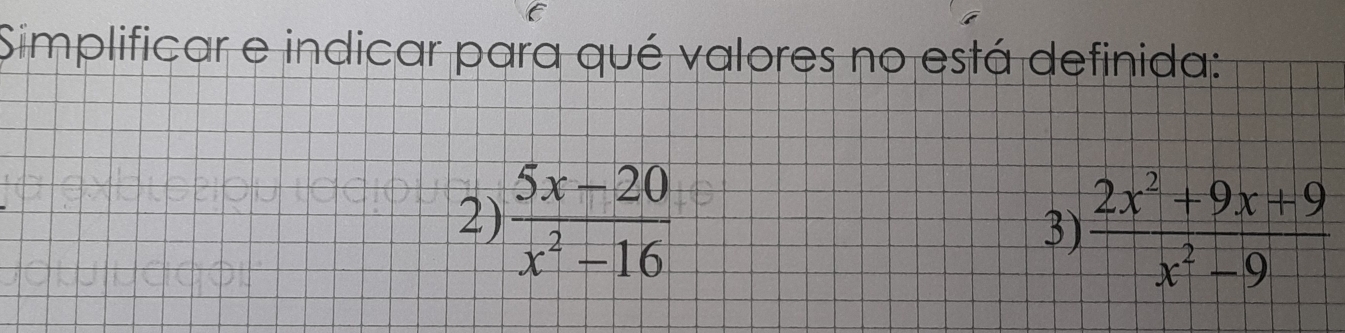 Simplificar e indicar para qué valores no está definida:
2) \frac{5x-20}{x^2-16}
3) \frac{2x^2+9x+9}{x^2-9}